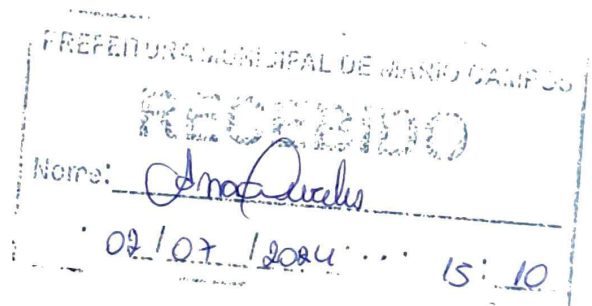 PREFEITURA MUNICIPAL DE MARIO CAMPOS
RECEBIDO
Nome: Ana
02/07/2024 15:10